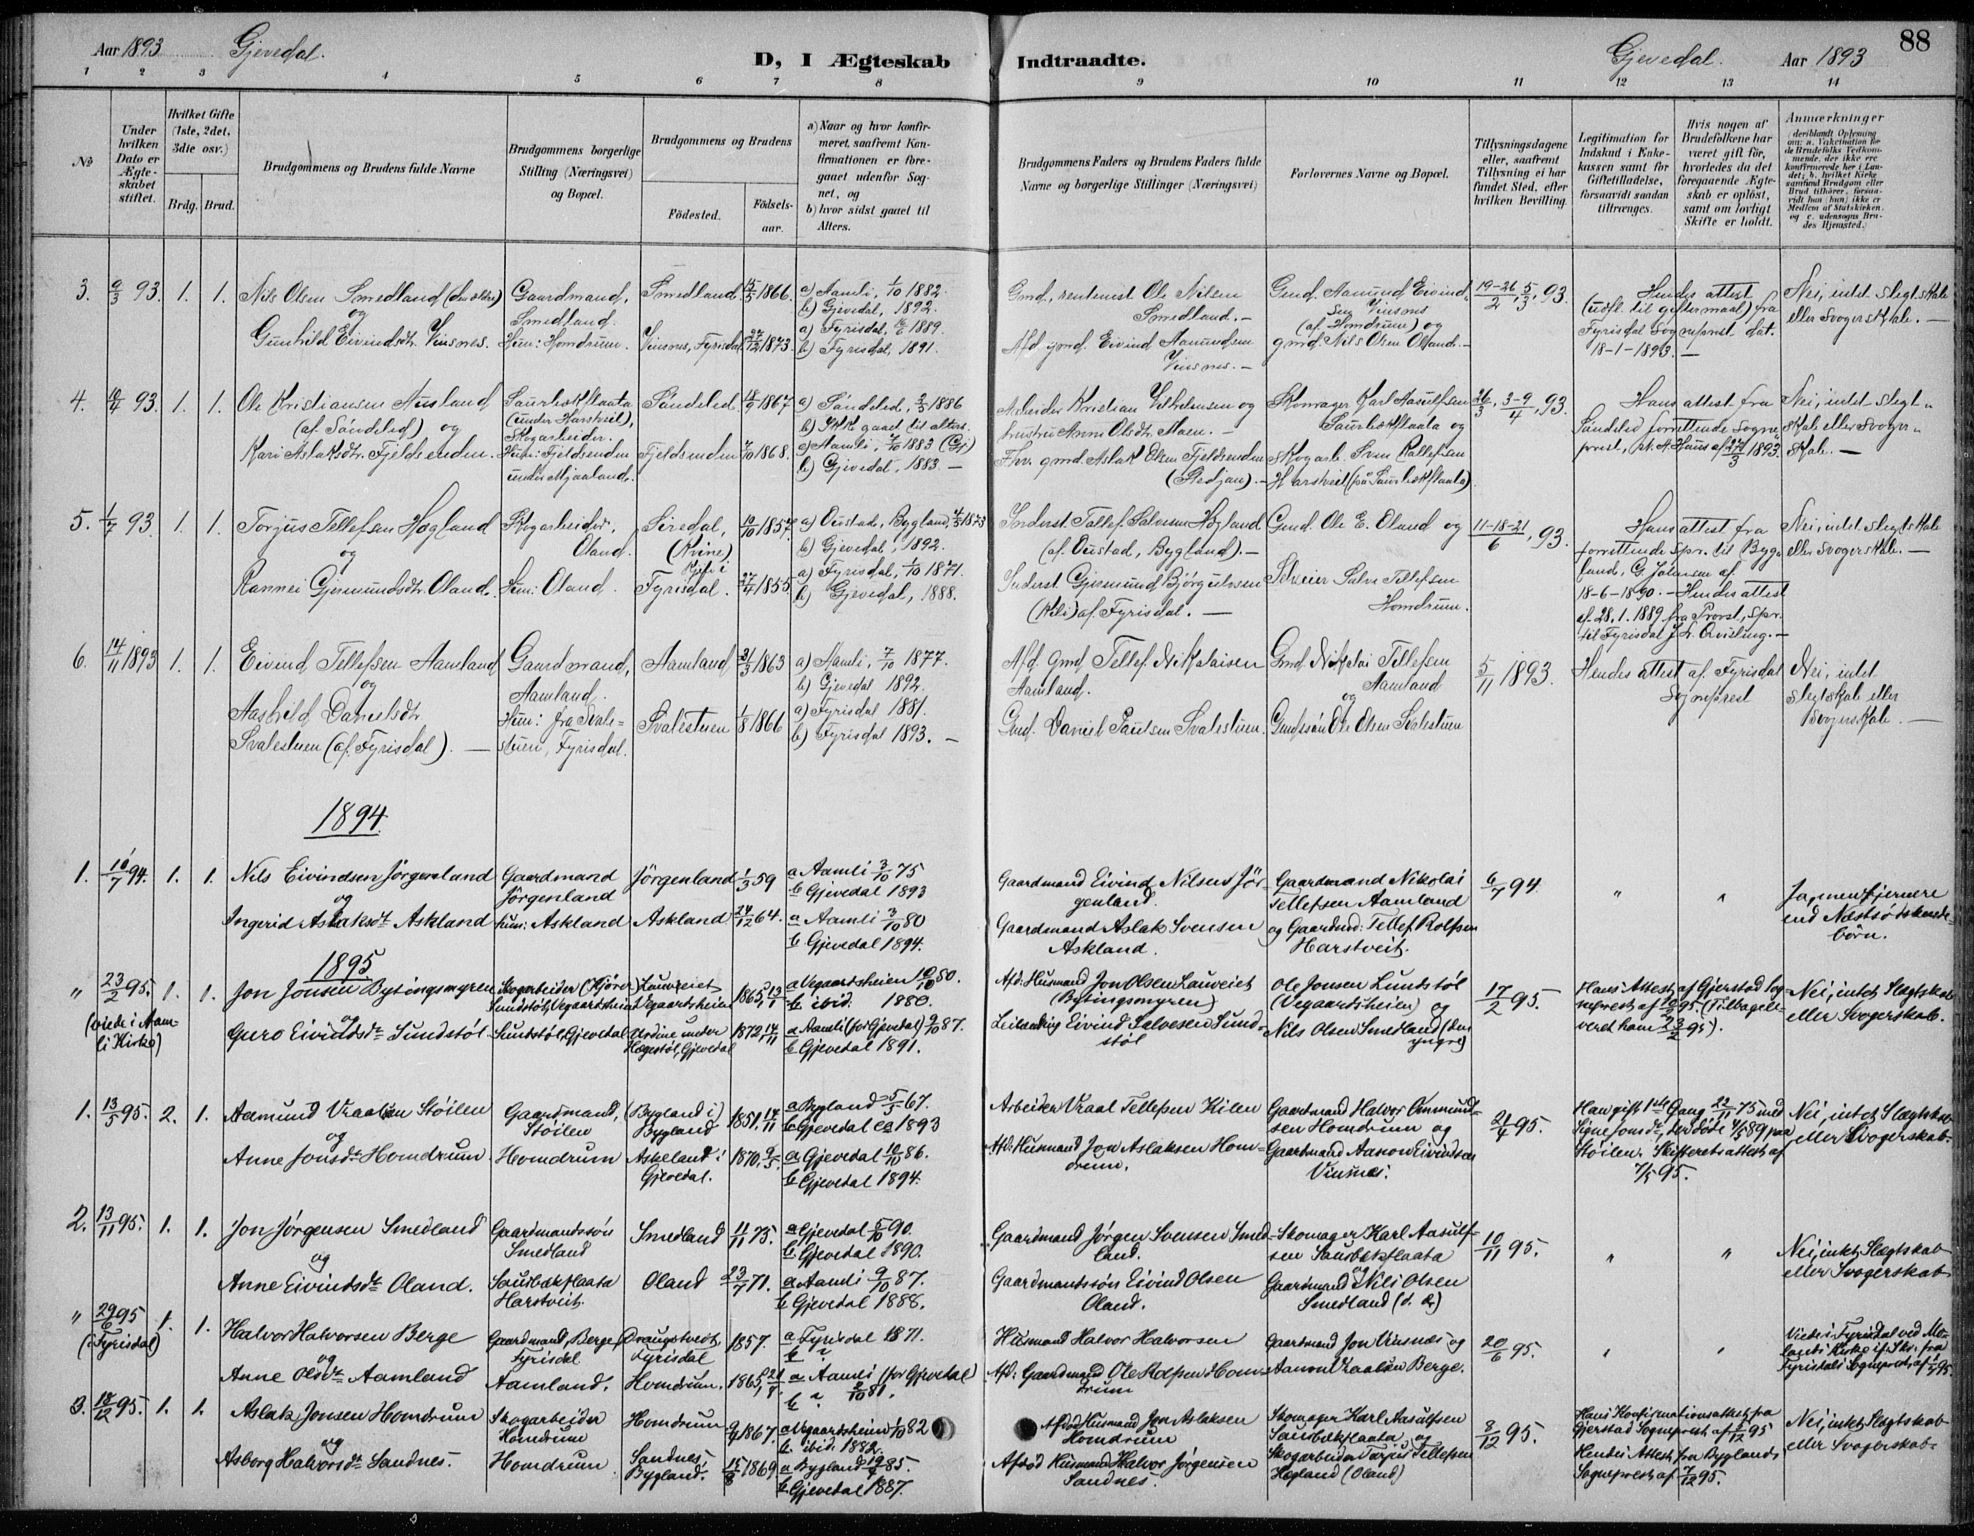 Aar 1893 Gjevedal. D, I Ægteskab
1 2 3 4 5 6 7 8
No
Under hvilken Dato er Ægteskabet stiftet.
Hvilket Gifte (1ste, 2det, 3die osv.)
Brdg. Brud.
Brudgommens og Brudens fulde Navne
Brudgommens borgerlige Stilling (Næringsvei) og Bopæl.
Brudgommens og Brudens
Födested. Födsels-aar.
a) Naar og hvor konfirmeret, saafremt Konfirmationen er foregaaet udenfor Sognet, og
b) hvor sidst gaaet til Alters.
3. 9/3 93. 1. 1. Nils Olsen Smedland (den ældre) Gaardmand, Smedland 15/5 1866. a) Aamli, 1/10 1882.
og Smedland. b) Gjevedal, 1892.
Gunhild Eivindsdtr Vinsnes. Hun: Homdrum. Vinsnes, Fyrisdal 27/12 1873 a) Fyrisdal, 1889.
b) Fyrisdal, 1891.
4. 10/4 93. 1. 1. Ole Kristiansen Ausland Saurbekflaata Söndeled 18/9 1867 a) Söndeled, 1886
(af Söndeled) og (under Harstveit), b) IKK gaaet til alters.
Skogarbeider.
Kari Aslaksdtr. Fjeldsenden. Hun: Fjeldsenden Fjeldsenden 1868. a) Aamli, 1883 (Gj)
under Mjaaland. b) Gjevedal, 1883. —
5. 1/7 93. 1. 1. Torjus Tellefsen Høgland Skogarbeider, Siredal, 10/10 1857. a) Oustad, Bygland, 1873
og Oland. (Kvine) b) Gjevedal, 1892.
Rannei Gjermundsdtr. Oland. Hun: Oland. Fyrisdal. 27/4 1855 a) Fyrisdal, 1/10 1871.
b) Gjevedal, 1888.
6. 14/11 1893 1. 1. Eivind Tellefsen Aamland Gaardmand, Aamland 31/3 1863 a) Aamli, 7/10 1877.
og Aamland. b) Gjevedal 1892.
Aashild Danielsdtr Hun: fra Svale- Svalestuen 1/8 1866 a) Fyrisdal 1881.
Svalestuen (af Fyrisdal). — stuen, Fyrisdal. b) Fyrisdal 1893. —
1894.
1. 10/7 94. 1. 1. Nils Eivindsen Jörgenland Gaardmand Jörgenland 1/3 59 a Aamli 3/10 75
og Jörgenland b Gjevedal 1893
Ingerid Aslaksdr Askland hun: Askland Askland 24/12 64. a Aamli 3/10 80
b Gjevedal 1894.
1895
" 23/2 95. 1. 1. Jon Jonsen Bytingsmyren Skogarbeider Lauvreiet 1865, 13/7 a Vegaartsheien 10/10 80.
(viede i Aam- og Sundstöl, Vegaartsheien Vegaartsheien b ibid. 1880.
li Kirke) Guro Eivindsdr Sundstöl Sundstöl, Gjevedal Urdine under 1872, 14/11 a Aamli (for Gjevedal) 9/10 87.
Høgestøl, Gjevedal b Gjevedal 1891.
1. 13/5 95. 2. 1. Aamund Vraalsen Stöilen Gaardmand, (Bygland i) 1851, 14/11 a Bygland 5/5 67.
og Stöilen Bygland b Gjevedal ca 1893
Anne Jonsdr Homdrum Homdrum Askeland i 1870, 9/5. a Gjevedal 10/10 86.
Gjevedal. b Gjevedal 1894.
2. 13/11 95. 1. 1. Jon Jörgensen Smedland Gaardmandssön Smedland 11/11 73. a Gjevedal 5/10 90.
og Smedland b Gjevedal 1890.
Anne Eivindsdr Oland. Sausbækflaata Oland 23/7 71. a Aamli 9/10 87.
Harstveit. b Gjevedal 1888.
" 29/6 95 1. 1. Halvor Halvorsen Berge Gaardmand, Berge Draugstveit 1857. a Fyrisdal 1871.
(i Fyrisdal) og Fyrisdal Fyrisdal b ?
Anne Olsdr Aamland Aamland. Homdrum. 1865, 21/8 a Aamli (for Gjevedal)
b " 2/10 81.
3. 18/12 95. 1. 1. Aslak Jonsen Homdrum Skogarbeider Homdrum 9/4 1867. a Vegaartsheien 1/10 82
og Homdrum b. ibid. 1882.
Asborg Halvorsdr Sandnes. Homdrum Sandnes 15/8 1869 a Bygland 19/4 85.
Bygland. b Gjevedal 1887.
Indtraadte. Gjevedal. Aar 1893 88
9 10 11 12 13 14
Brudgommens Faders og Brudens Faders fulde Navne og borgerlige Stillinger (Næringsvei)
Forlovernes Navne og Bopæl.
Tillysningsdagene eller, saafremt Tillysning ei har fundet Sted, efter hvilken Bevilling.
Legitimation for Indskud i Enkekassen samt for Giftetilladelse, forsaavidt saadan tiltrænges.
Hvis nogen af Brudefolkene har været gift før, hvorledes da det foregaaende Ægteskab er oplöst, samt om lovligt Skifte er holdt.
Anmærkninger (deriblandt Oplysning om: a. Vakcination for de Brudefolks Vedkommende, der ikke ere konfirmerede her i Landet; b. hvilket Kirkesamfund Brudgom eller Brud tilhører, forsaavidt han (hun) ikke er Medlem af Statskirken, og c. udensogns Brudes Hjemsted.)
Gmd., rentenist Ole Nilsen Gmd. Aamund Eivind- 19-26/2, 5/3, 93. Hendes attest Nei, intet slegtskab
Smedland. — sen Vinsnes (udfl. til giftermaal) fra eller Svogerskab. —
(af Homdrum) og Fyrisdal Sogneprest, dat.
Afd. gmd. Eivind Aamundsen gmd. Nils Olsen Oland. — 18-1-1893. —
Vinsnes. —
Arbeider Kristian Vilhelmsen og Skomager Karl Aasulfsen 26/3, 3-9/4, 93. Hans attest fra Nei, intet slegt-
hustru Anne Olsdtr. Moen. — Saurbekflaata og Söndeled forrettende Sogne- skab eller Svoger-
Fhv. gmd. Aslak Olsen Fjeldsenden Skogarb. Sven Rallefsen prest, Hans af 27/3 1893. skab. —
(Stedjan). — Harstveit (på Saurbekflaata)
Inderst Tallef Salvesen Høgland Gmd. Ole E. Oland og 11-18-21/6, 93. Hans attest fra Nei, intet slegtskab
(af Oustad, Bygland). — forrettende Spr. til Byg- eller svogerskab. —
Inderst Gjermund Bjørgulvsen Selveier Salve Tellefsen land, G. Johnsen af
(Kili) af Fyrisdal. — Homdrum. 18-6-1890. — Hendes attest
af 28.1.1889 fra Provst, Spr.
til Fyrisdal J. L. Qvisling. —
Afd. Gmd. Tellef Nikolaisen Gmd. Nikolai Tellefsen 5/11 1893. Hendes attest af Fyrisdal Nei, intet
Aamland. Aamland Sogneprest slegtskab eller
og Svogerskab. —
Gmd. Daniel Paulsen Svalestuen. Gmdssön Ole Olsen Svalestuen
Gaardmand Eivind Nilsen Jör- Gaardmand Nikolai 6/7 94. " " Ja, men fjernere
genland. Tellefsen Aamland end Næstsødskende-
Gaardmand Aslak Svensen og Gaardmd: Tellef Rolfsen börn.
Askland. Harstveit.
Afd. Husmand Jon Olsen Lauvreiet Ole Jonsen Lundstöl 17/2 95. Hans Attest af Gjerstad Sog- Nei, intet Slægtskab
(Bytingsmyren) (Vegaardsheien) og neprest af 95. (Tilbagele- eller Svogerskab.
Leilending Eivind Salvesen Sund- Nils Olsen Smedland (den veret ham 23/2 95).
stöl yngre)
Arbeider Vraal Tellefsen Kilen Gaardmand Halvor Ommund- 21/4 95. Han gift 1ste Gang 22/11 75 med Nei, intet Slægtskab
sen Homdrum og Signe Jonsdr, der döde 89 paa eller Svogerskab.
Afd. Husmand Jon Aslaksen Hom- Gaardmand Aanon Eivindsen Stöilen. Skifteretsattest af
drum. Vinsnes. 7/5 95.
Gaardmand Jörgen Svensen Smed- Skomager Karl Aasulf- 10/11 95. " " Nei, intet Slægtskab
land. sen Sausbekflaata eller Svogerskab
Gaardmandssön Eivind Olsen og Gaardmand Nils Olsen
Oland. Smedland (d. æ)
Husmand Halvor Halvorsen Gaardmand Jon Vinsnæs og 20/6 95. " " Viede i Fyrisdal ved Mo-
Afd: Gaardmand Ole Rolfsen Hom- Aanon Vraalsen Berge. lands Kirke
drum Fyrisdals Sogneprest af 95
Afdöd Husmand Jon Aslaksen Skomager Karl Aasulfsen 8/12 95. Hans Konfirmationsattest fra Nei, intet Slægtskab
Homdrum Sausbekflaata og Gjerstad Sogneprest af 95 eller Svogerskab.
Afdöd Husmand Halvor Jörgensen Skogarbeider Torjus Tellefsen Hendes Attest fra Byglands
Sandnes. Høgland (Oland) Sogneprest af 7/12 95.